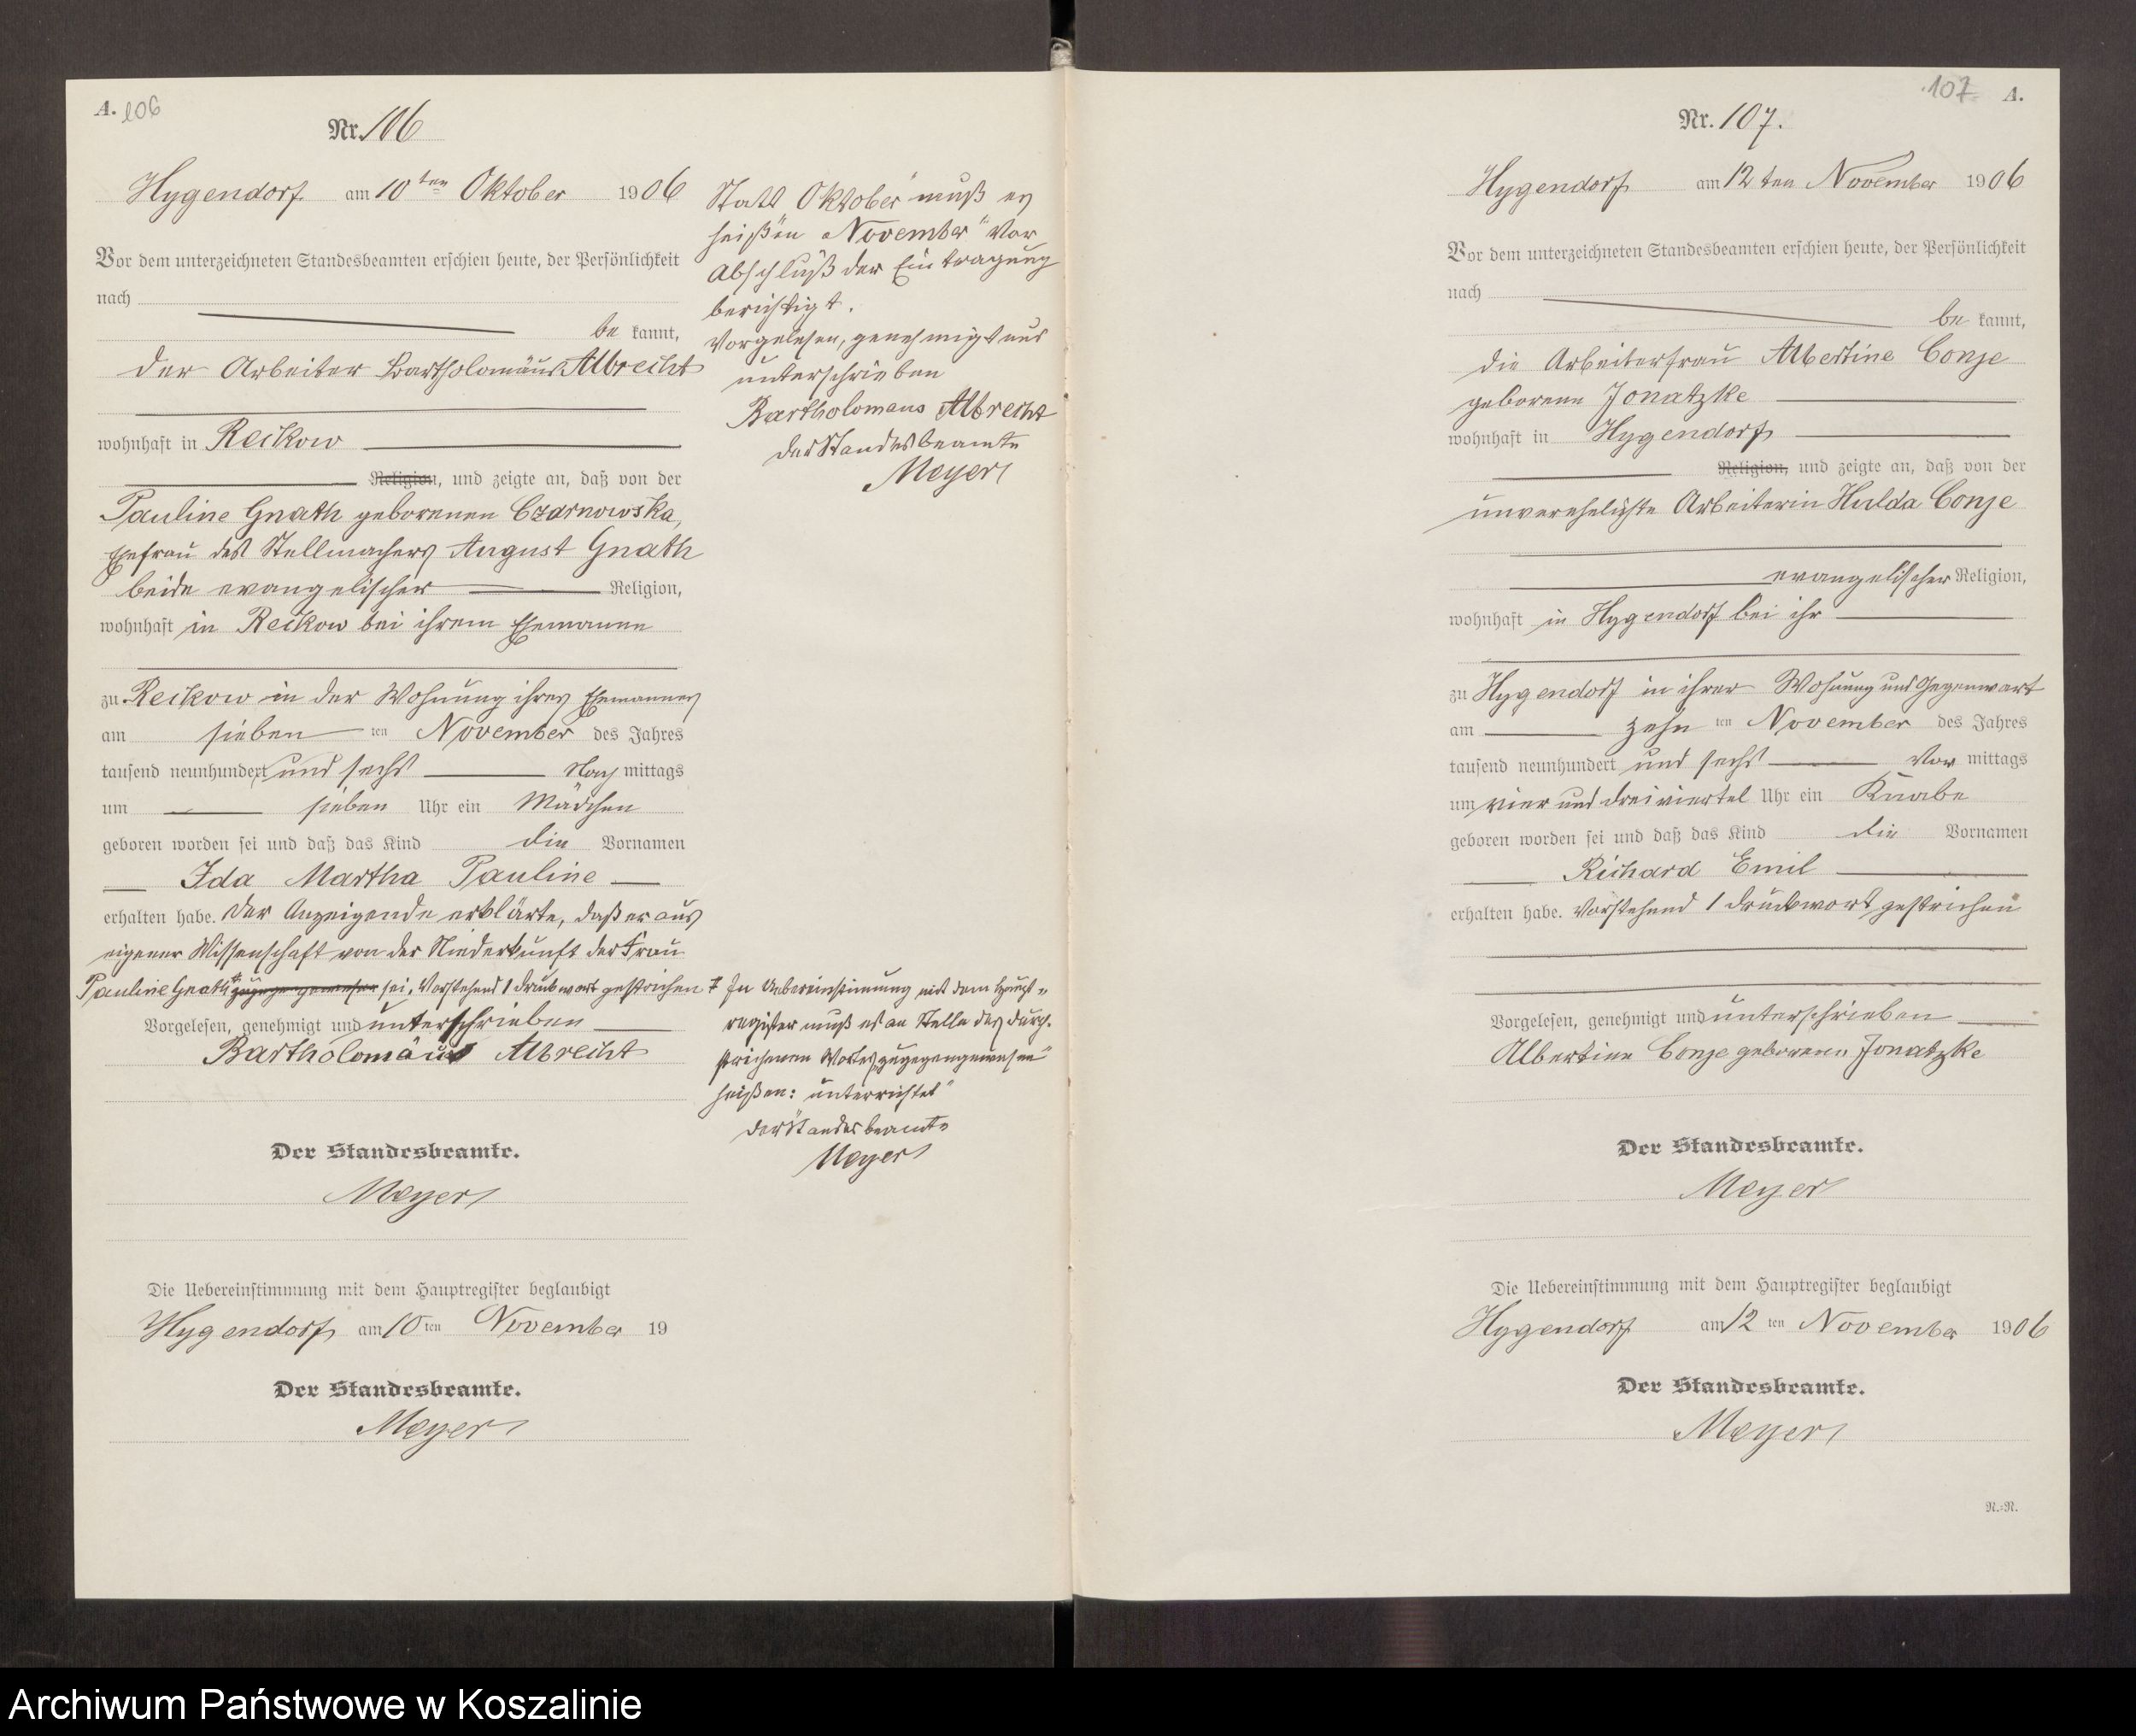 A. 106
Nr. 106
Hygendorf am 10ten Oktober 1906
Vor dem unterzeichneten Standesbeamten erschien heute, der Persönlichkeit
nach
be kannt,
der Arbeiter Bartholomäus Albrecht
wohnhaft in Reikow
Religion, und zeigte an, daß von der
Pauline Gnath geborenen Czarnowska,
Ehefrau des Stellmachers August Gnath
beide evangelischer Religion,
wohnhaft in Reikow bei ihrem Ehemanne
zu Reikow in der Wohnung ihres Ehemannes
am sieben ten November des Jahres
tausend neunhundert und sechs Nach mittags
um sieben Uhr ein Mädchen
geboren worden sei und daß das Kind die Vornamen
Ida Martha Pauline
erhalten habe. Der Anzeigende erklärte, daß er aus
eigener Wissenschaft von der Niederkunft der Frau
Pauline Gnath + zugegengewesen sei. Vorstehend 1 Druckwort gestrichen
Vorgelesen, genehmigt und unterschrieben
Bartholomäus Albrecht
Der Standesbeamte.
Meyer
Die Uebereinstimmung mit dem Hauptregister beglaubigt
Hygendorf am 10 ten November 19
Der Standesbeamte.
Meyer
Statt Oktober" muß es
heißen „November" Vor
Abschluß der Eintragung
berichtigt.
Vorgelesen, genehmigt und
unterschrieben
Bartholomaus Albrecht
der Standesbeamte
Meyer
+ In Uebereinstimmung mit dem Haupt-
register muß es an Stelle des durch-
strichenen Wortes „zugegengewesen"
heißen: unterrichtet"
der Standesbeamte
Meyer
107 A.
Nr. 107.
Hygendorf am 12 ten November 1906
Vor dem unterzeichneten Standesbeamten erschien heute, der Persönlichkeit
nach
be kannt,
die Arbeiterfrau Albertine Conje
geborene Jonatzke
wohnhaft in Hygendorf
Religion, und zeigte an, daß von der
unverehelichte Arbeiterin Hulda Conje
evangelischer Religion,
wohnhaft in Hygendorf bei ihr
zu Hygendorf in ihrer Wohnung und Gegenwart
am zehn ten November des Jahres
tausend neunhundert und sechs Vor mittags
um vier und dreiviertel Uhr ein Knabe
geboren worden sei und daß das Kind die Vornamen
Richard Emil
erhalten habe. Vorstehend 1 Druckwort gestrichen
Vorgelesen, genehmigt und unterschrieben
Albertine Conje geborene Jonatzke
Der Standesbeamte.
Meyer
Die Uebereinstimmung mit dem Hauptregister beglaubigt
Hygendorf am 12 ten November 1906
Der Standesbeamte.
Meyer
N.-R.
Archiwum Państwowe w Koszalinie